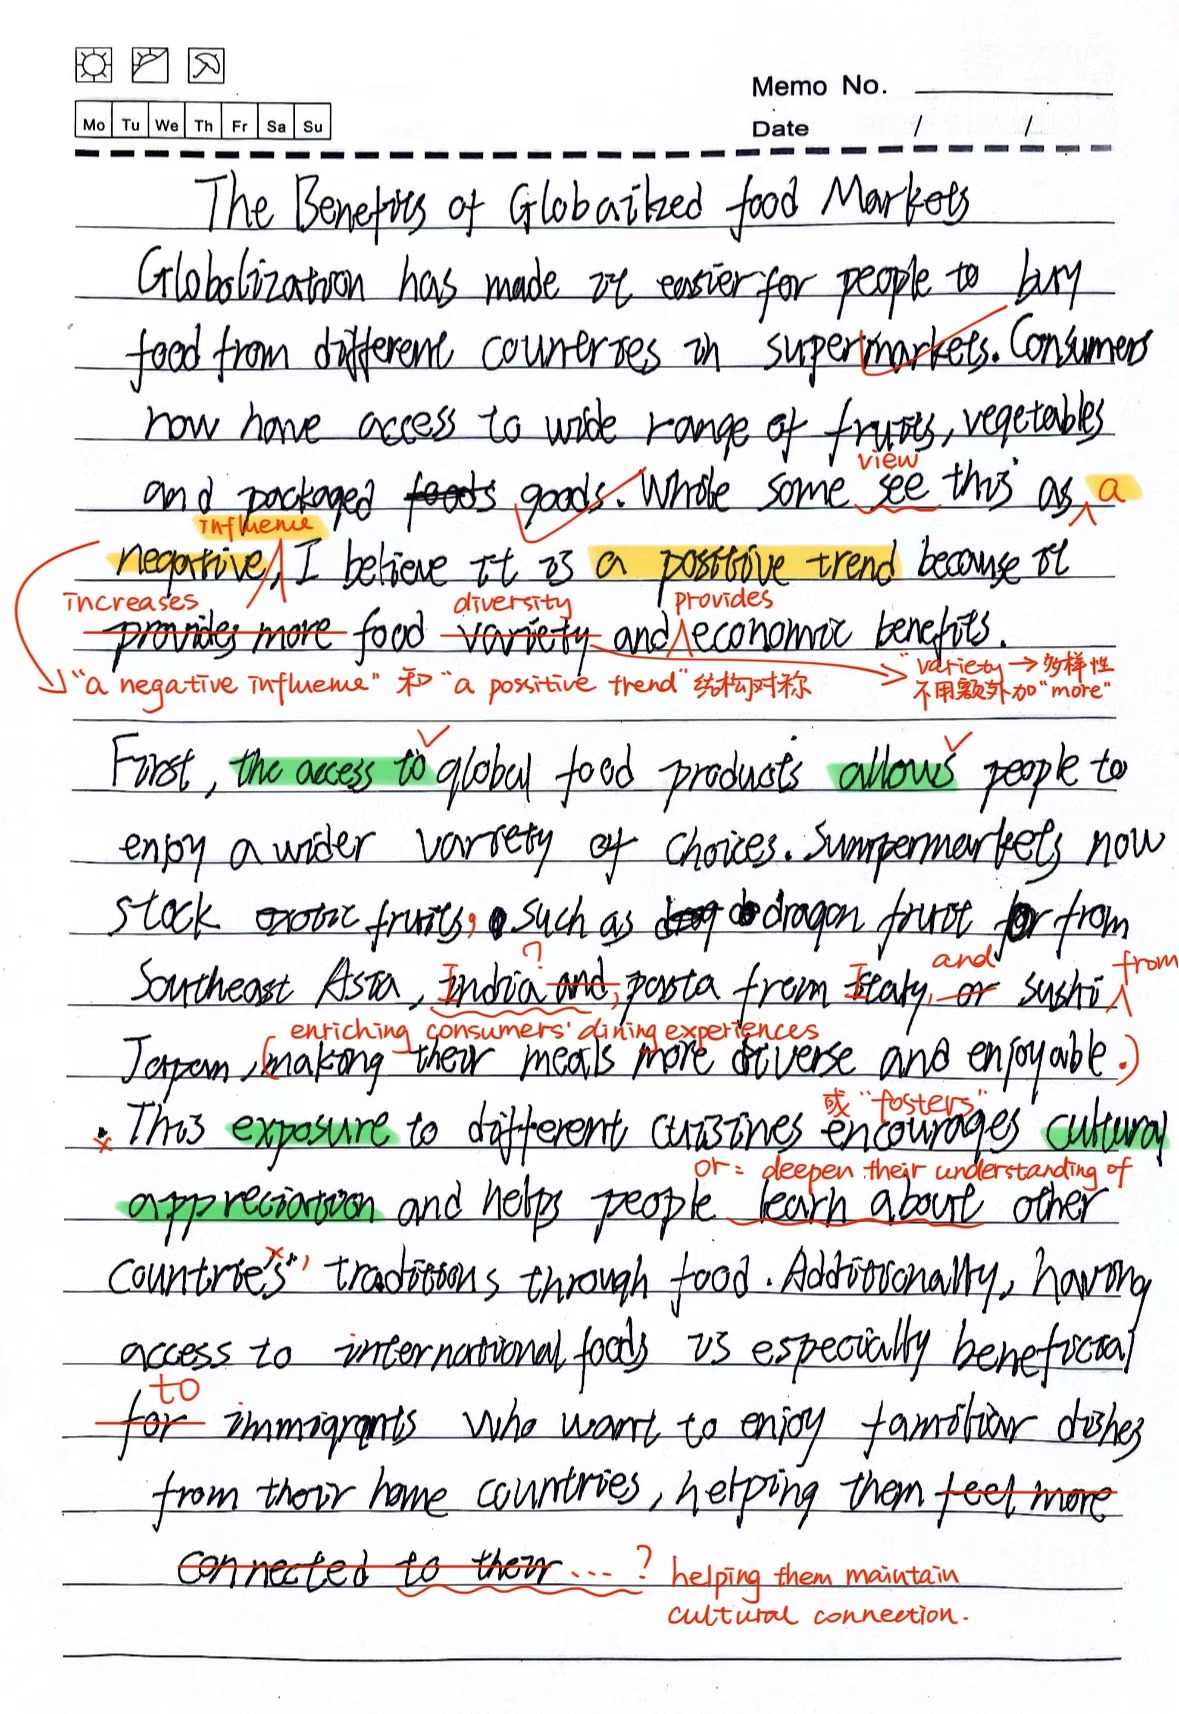 Memo No.
Mo Tu We Th Fr Sa Su
Date / /
The Benefits of Globalized food Markets
Globalization has made it easier for people to buy
food from different countries in supermarkets. Consumers
now have access to wide range of fruits, vegetables
view
and packaged foods goods. While some see this as a
influence
negative, I believe it is a positive trend because it
increases diversity provides
provides more food variety and economic benefits.
"a negative influence" 和 "a possitive trend" 结构对称
"variety → 多样性
不用额外加"more"
First, the access to global food products allows people to
enjoy a wider variety of choices. Sumpermarkets now
stock exotic fruits, such as dragon fruit from
? and from
Southeast Asia, India and, pasta from Italy, or sushi
enriching consumers' dining experiences
Japan, (making their meals more diverse and enjoyable.)
或 "fosters"
This exposure to different cuisines encourages cultural
or: deepen their understanding of
appreciation and helps people learn about other
countries' traditions through food. Additionally, having
access to international foods is especially beneficial
to
for immigrants who want to enjoy familiar dishes
from their home countries, helping them feel more
connected to their ... ? helping them maintain
cultural connection.